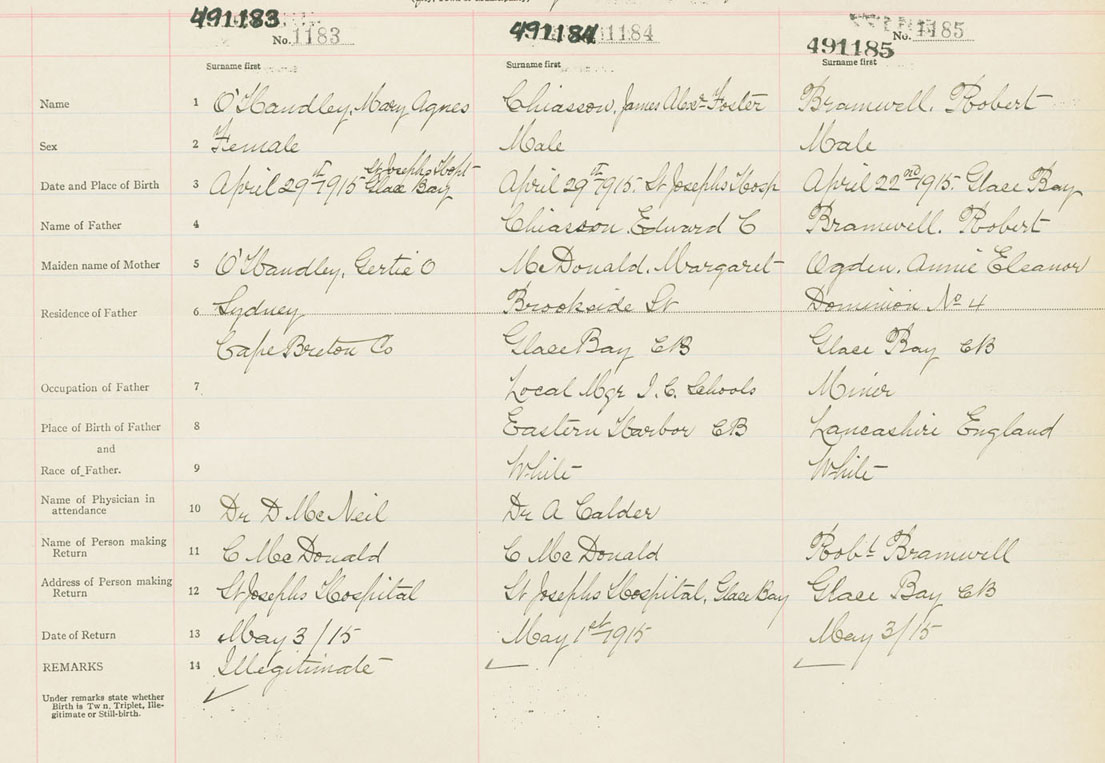 491183 No. 1183 491184 1184 No. 1185
491185
Surname first Surname first Surname first
Name 1 O'Handley, Mary Agnes Chiasson, James Alexr Foster Bramwell. Robert
Sex 2 Female Male Male
Date and Place of Birth 3 April 29th 1915 St Josephs Hospt Glace Bay April 29th 1915. St Josephs Hosp April 22nd 1915. Glace Bay
Name of Father 4 Chiasson, Edward C Bramwell. Robert
Maiden name of Mother 5 O'Handley, Gertie O McDonald, Margaret Ogden, Annie Eleanor
Residence of Father 6 Sydney Brookside St Dominion No 4
Cape Breton Co Glace Bay CB Glace Bay CB
Occupation of Father 7 Local Mgr I. C. Schools Miner
Place of Birth of Father 8 Eastern Harbor CB Lancashire England
and
Race of Father. 9 White White
Name of Physician in attendance 10 Dr D McNeil Dr A Calder
Name of Person making Return 11 C McDonald C McDonald Robt Bramwell
Address of Person making Return 12 St Josephs Hospital St Josephs Hospital, Glace Bay Glace Bay CB
Date of Return 13 May 3/15 May 1st 1915 May 3/15
REMARKS 14 Illegitimate
Under remarks state whether
Birth is Twin, Triplet, Ille-
gitimate or Still-birth.